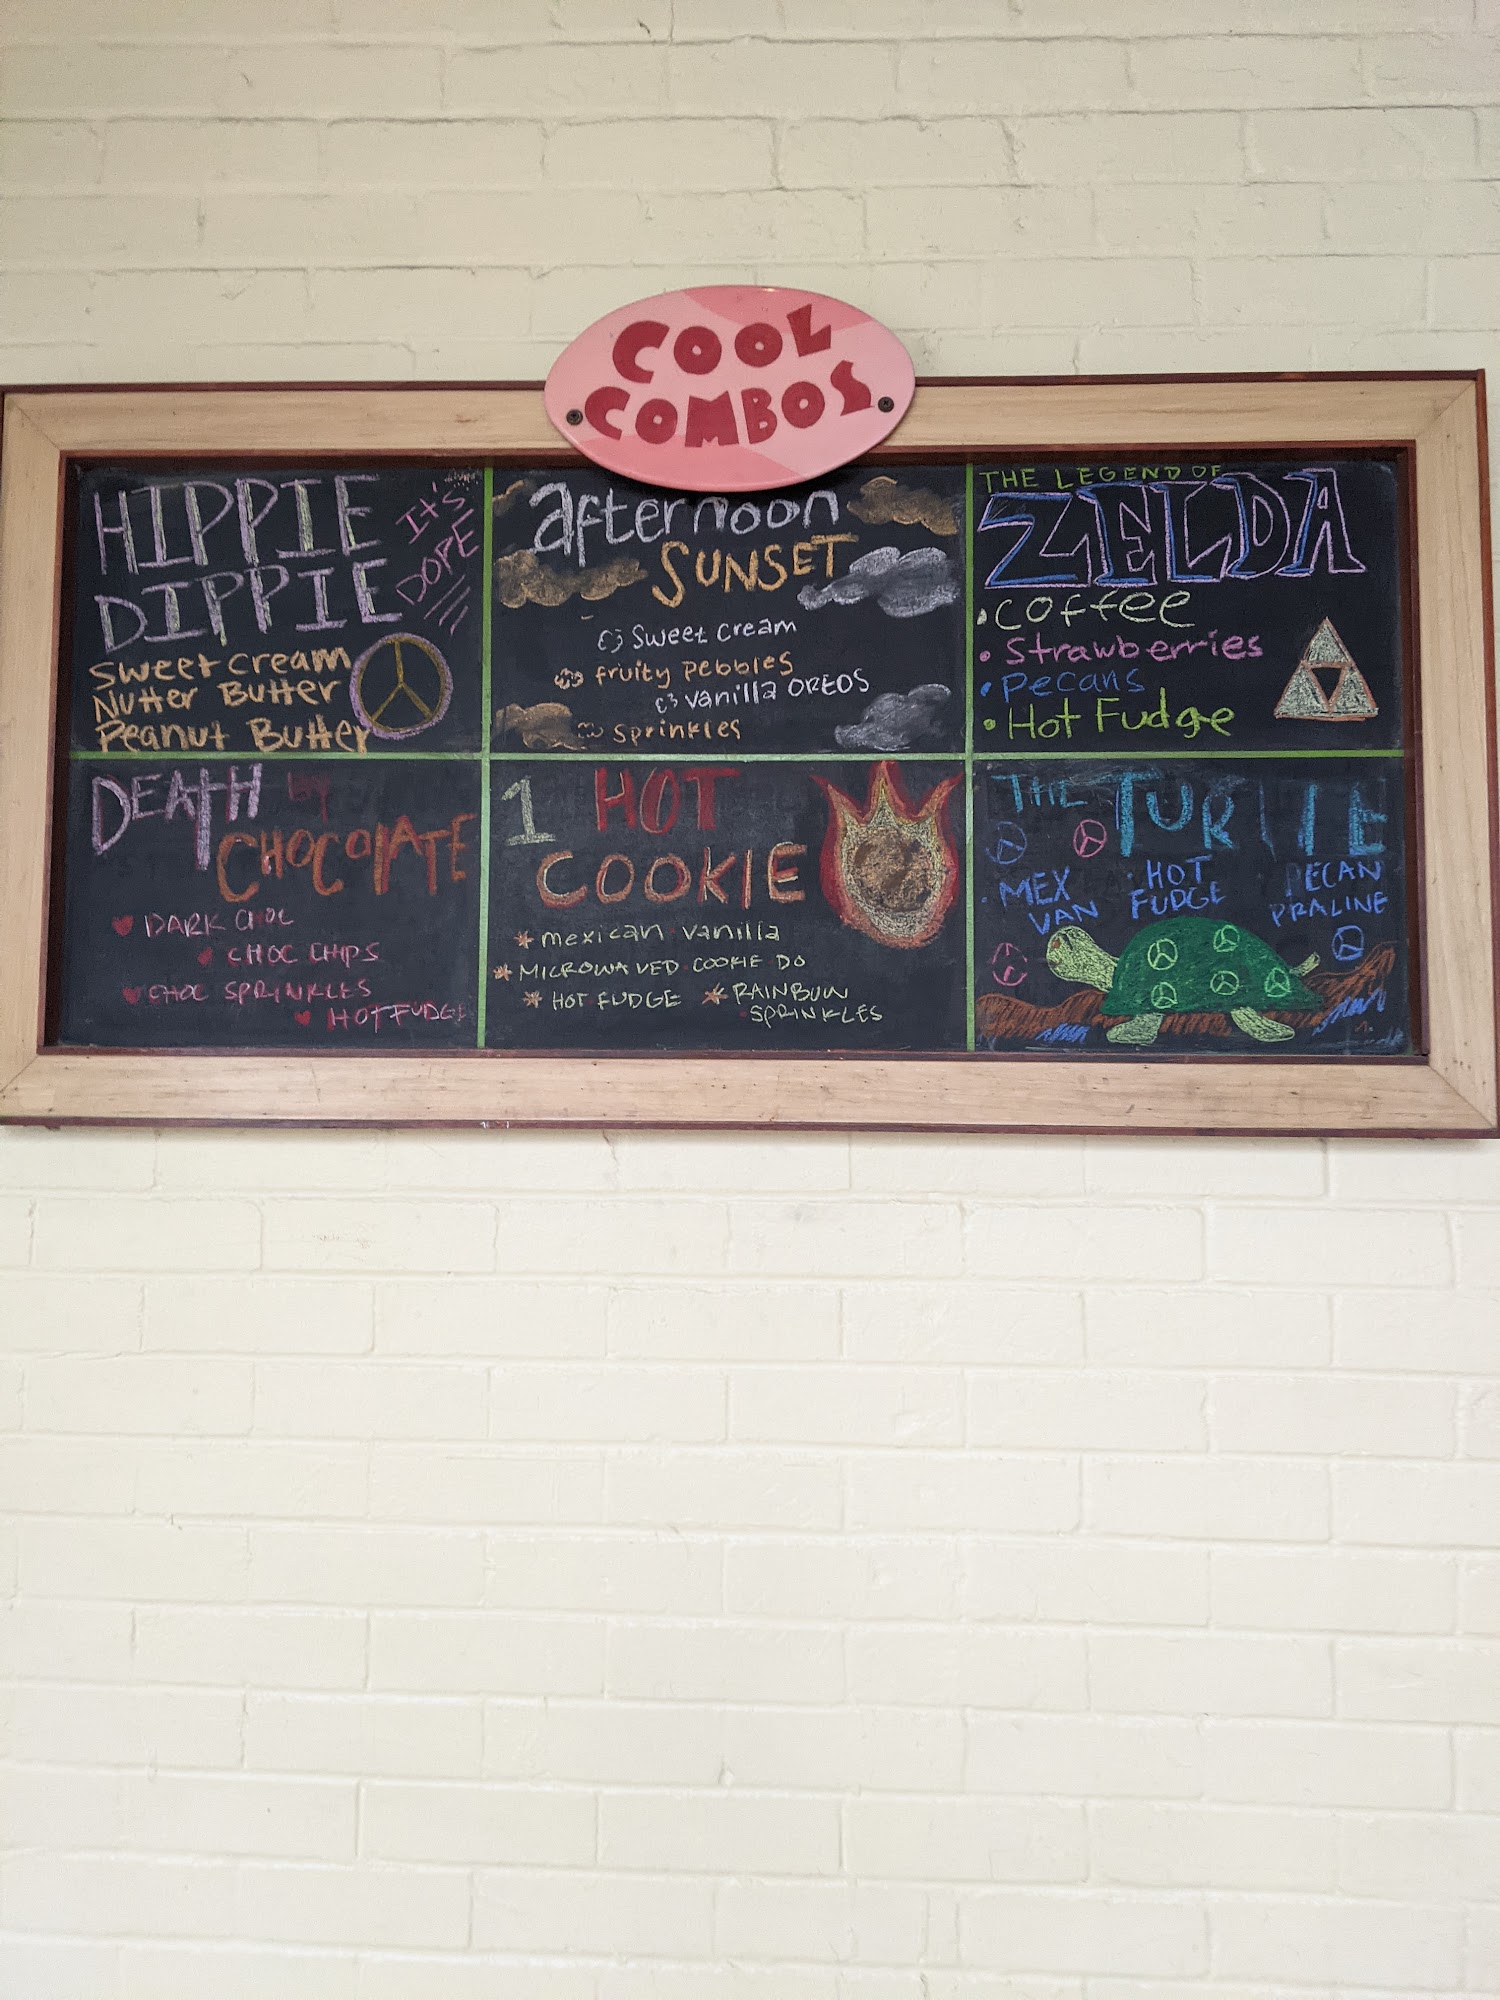 COOL
COMBOS
HIPPIE
DIPPIE
It's
DOPE
Sweet cream
Nutter Butter
Peanut Butter
afternoon
SUNSET
Sweet cream
fruity pebbles
vanilla OREOS
Sprinkles
THE LEGEND OF
ZELDA
• coffee
• Strawberries
• Pecans
• Hot Fudge
DEATH by
CHOCOLATE
DARK CHOC
CHOC CHIPS
CHOC SPRINKLES
HOT FUDGE
1 HOT
COOKIE
mexican vanilla
MICROWAVED COOKIE DO
HOT FUDGE RAINBOW
SPRINKLES
THE TURTLE
• MEX
VAN
• HOT
FUDGE
PECAN
PRALINE